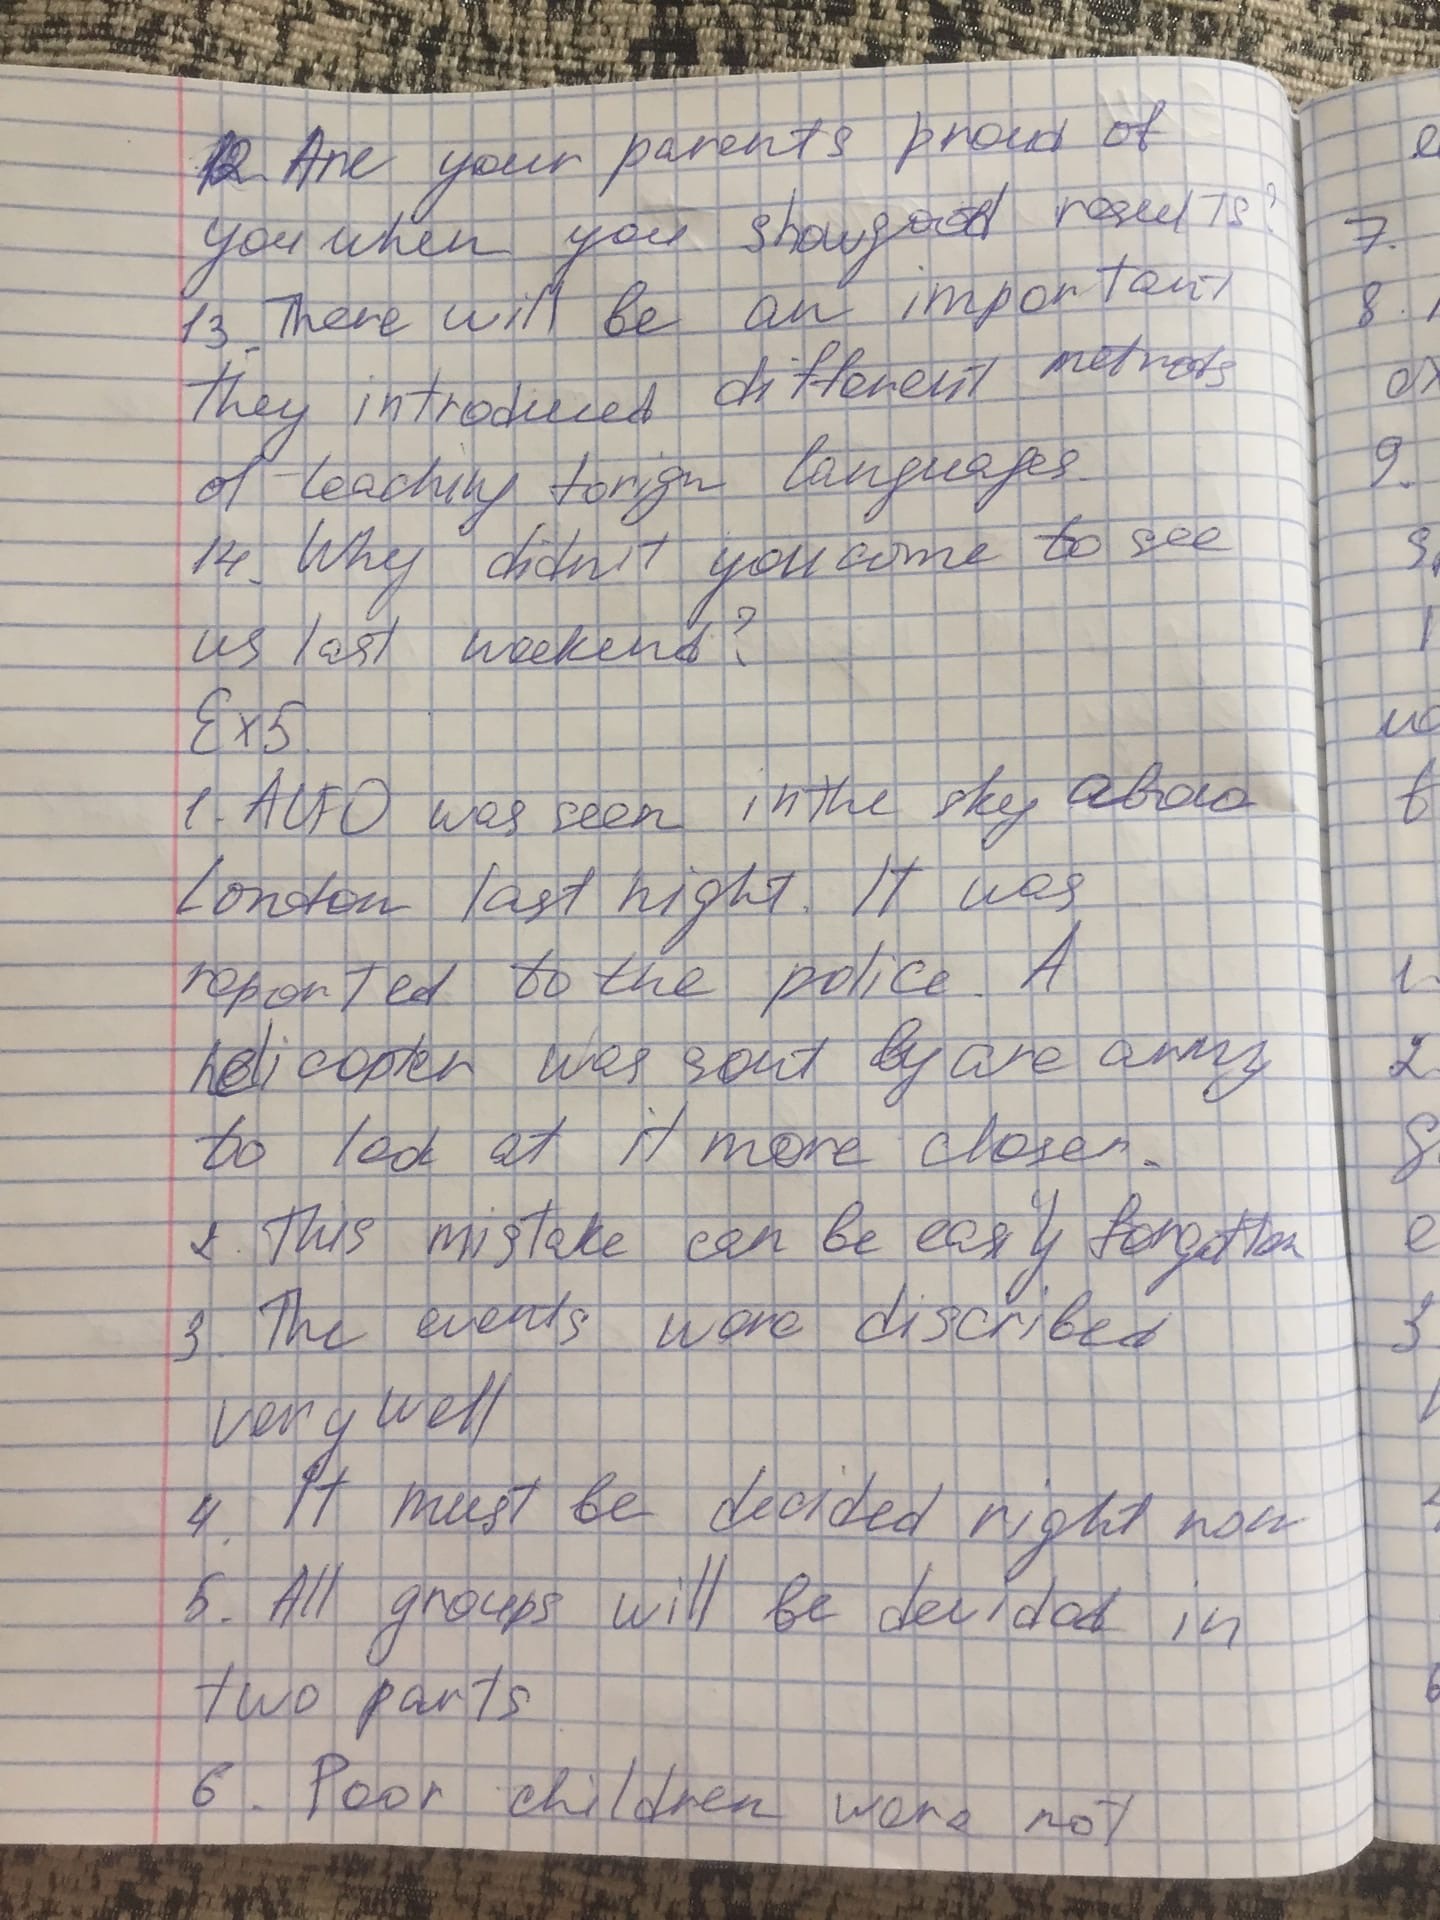 12. Are your parents proud of
you when you show good results?
13. There will be an important
they introduced different methods
of teaching forign languages.
14. Why didn't you come to see
us last weekend?
Ex5.
1. A UFO was seen in the sky
London last night. It was
reported to the police. A
helicopter was sent by are army
to at it more closer.
2. This mistake can be easily forgotten
3. The events were discribed
very well
4. It must be decided right now
5. All groups will be devided in
two parts
6. Poor children were not
7.
8.
9.
2.
3